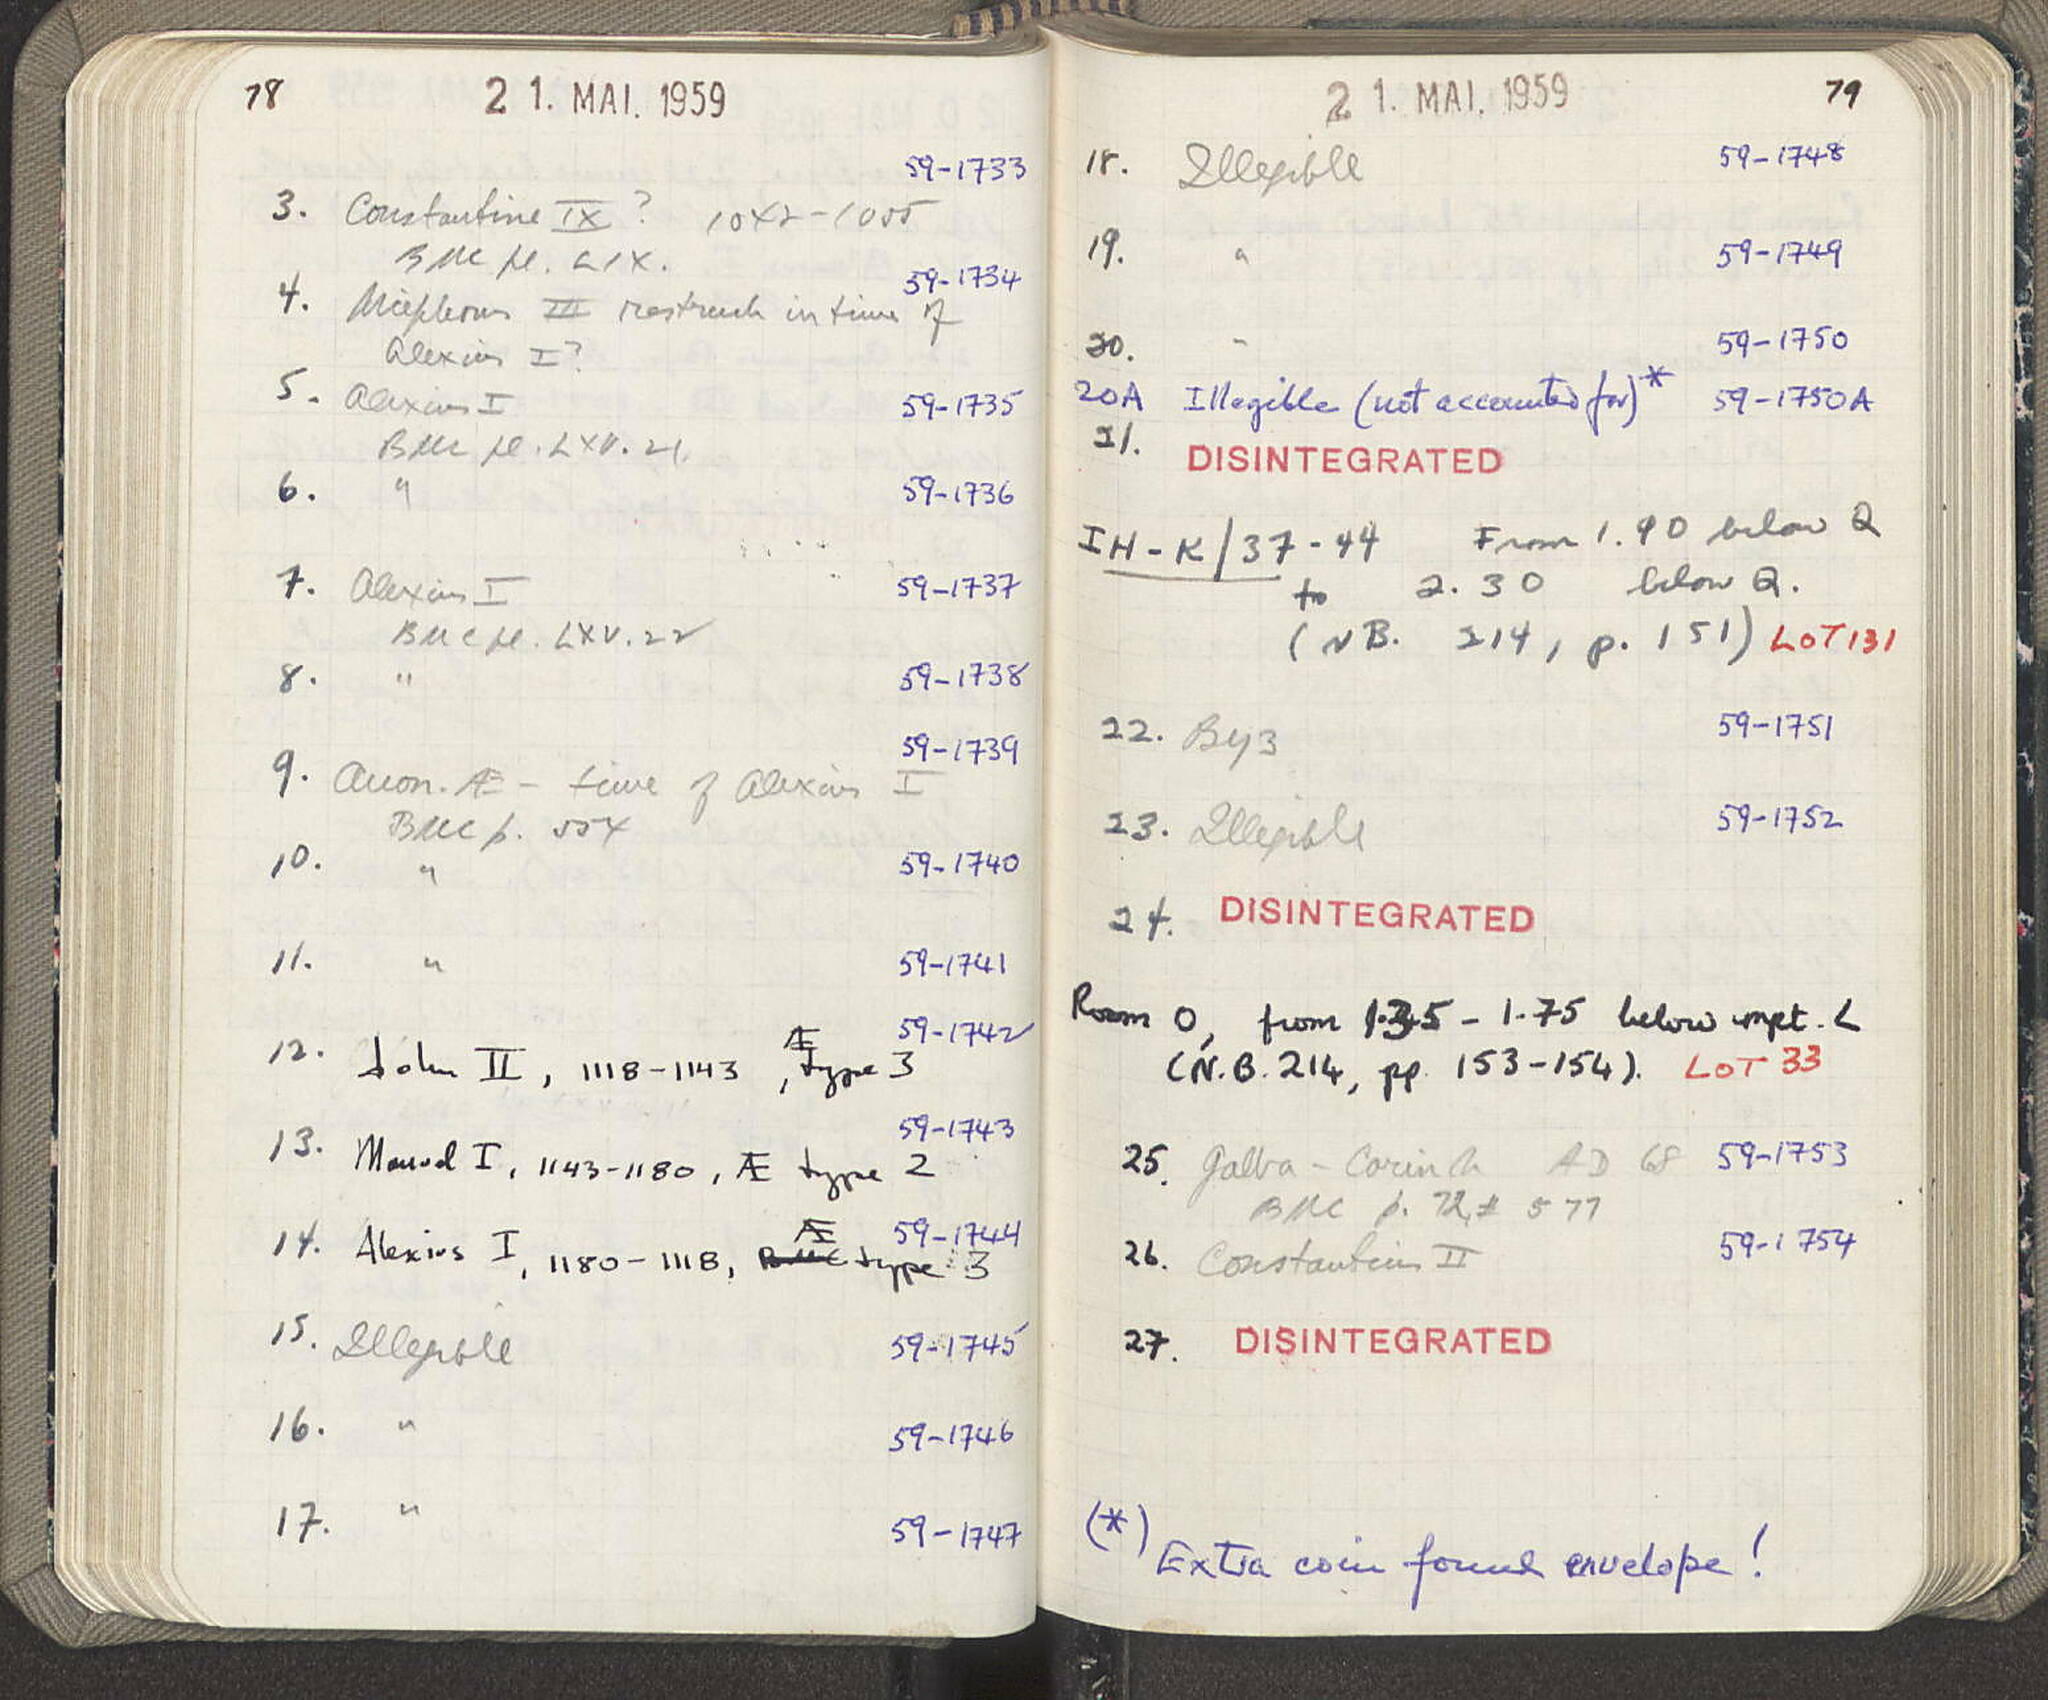 78
21. MAI. 1959
59-1733
3. Constantine IX ? 1042-1055
BMC pl. LIX.
59-1734
4. Nicephorus III restruck in time of
Alexius I?
5. Alexius I 59-1735
BMC pl. LXV. 21.
6. " 59-1736
7. Alexius I 59-1737
BMC pl. LXV. 22
8. " 59-1738
59-1739
9. Anon. Æ - time of Alexius I
BMC p. 554
10. " 59-1740
11. " 59-1741
59-1742
12. John II, 1118-1143, Æ type 3
59-1743
13. Manuel I, 1143-1180, Æ type 2
59-1744
14. Alexius I, 1180-1118, BMC Æ type 3
15. Illegible 59-1745
16. " 59-1746
17. " 59-1747
21. MAI. 1959
79
18. Illegible 59-1748
19. " 59-1749
20. " 59-1750
20A Illegible (not accounted for)* 59-1750A
21. DISINTEGRATED
IH-K/37-44 From 1.90 below Q
to 2.30 below Q.
(NB. 214, p. 151) LOT 131
22. Byz 59-1751
23. Illegible 59-1752
24. DISINTEGRATED
Room O, from 1.35-1.75 below wpt. L
(N.B. 214, pp. 153-154). LOT 33
25. Galba - Corinth AD 68 59-1753
BMC p. 72, # 577
26. Constantius II 59-1754
27. DISINTEGRATED
(*) Extra coin found envelope!